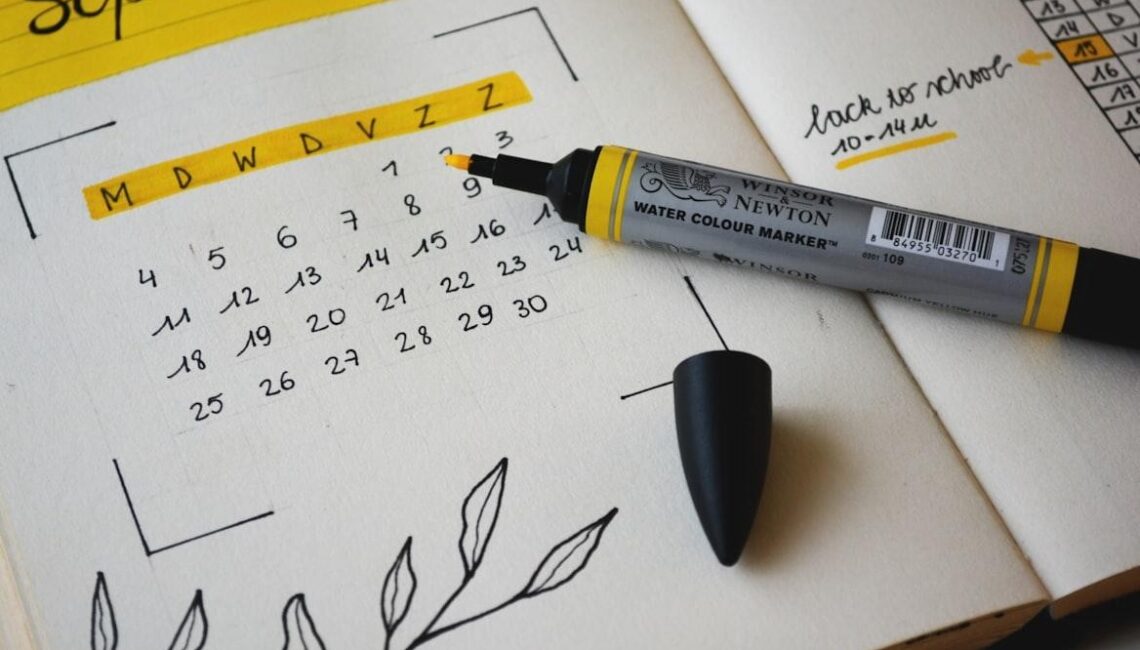 Sep
M D W D V Z Z
1 2 3
4 5 6 7 8 9
11 12 13 14 15 16
18 19 20 21 22 23 24
25 26 27 28 29 30
WINSOR
&
NEWTON
WATER COLOUR MARKER™
8 84955 03270 1
0201 109
WINSOR
CADMIUM YELLOW HUE
back to school
10-14u
13 W
14 D
15 V
16
17